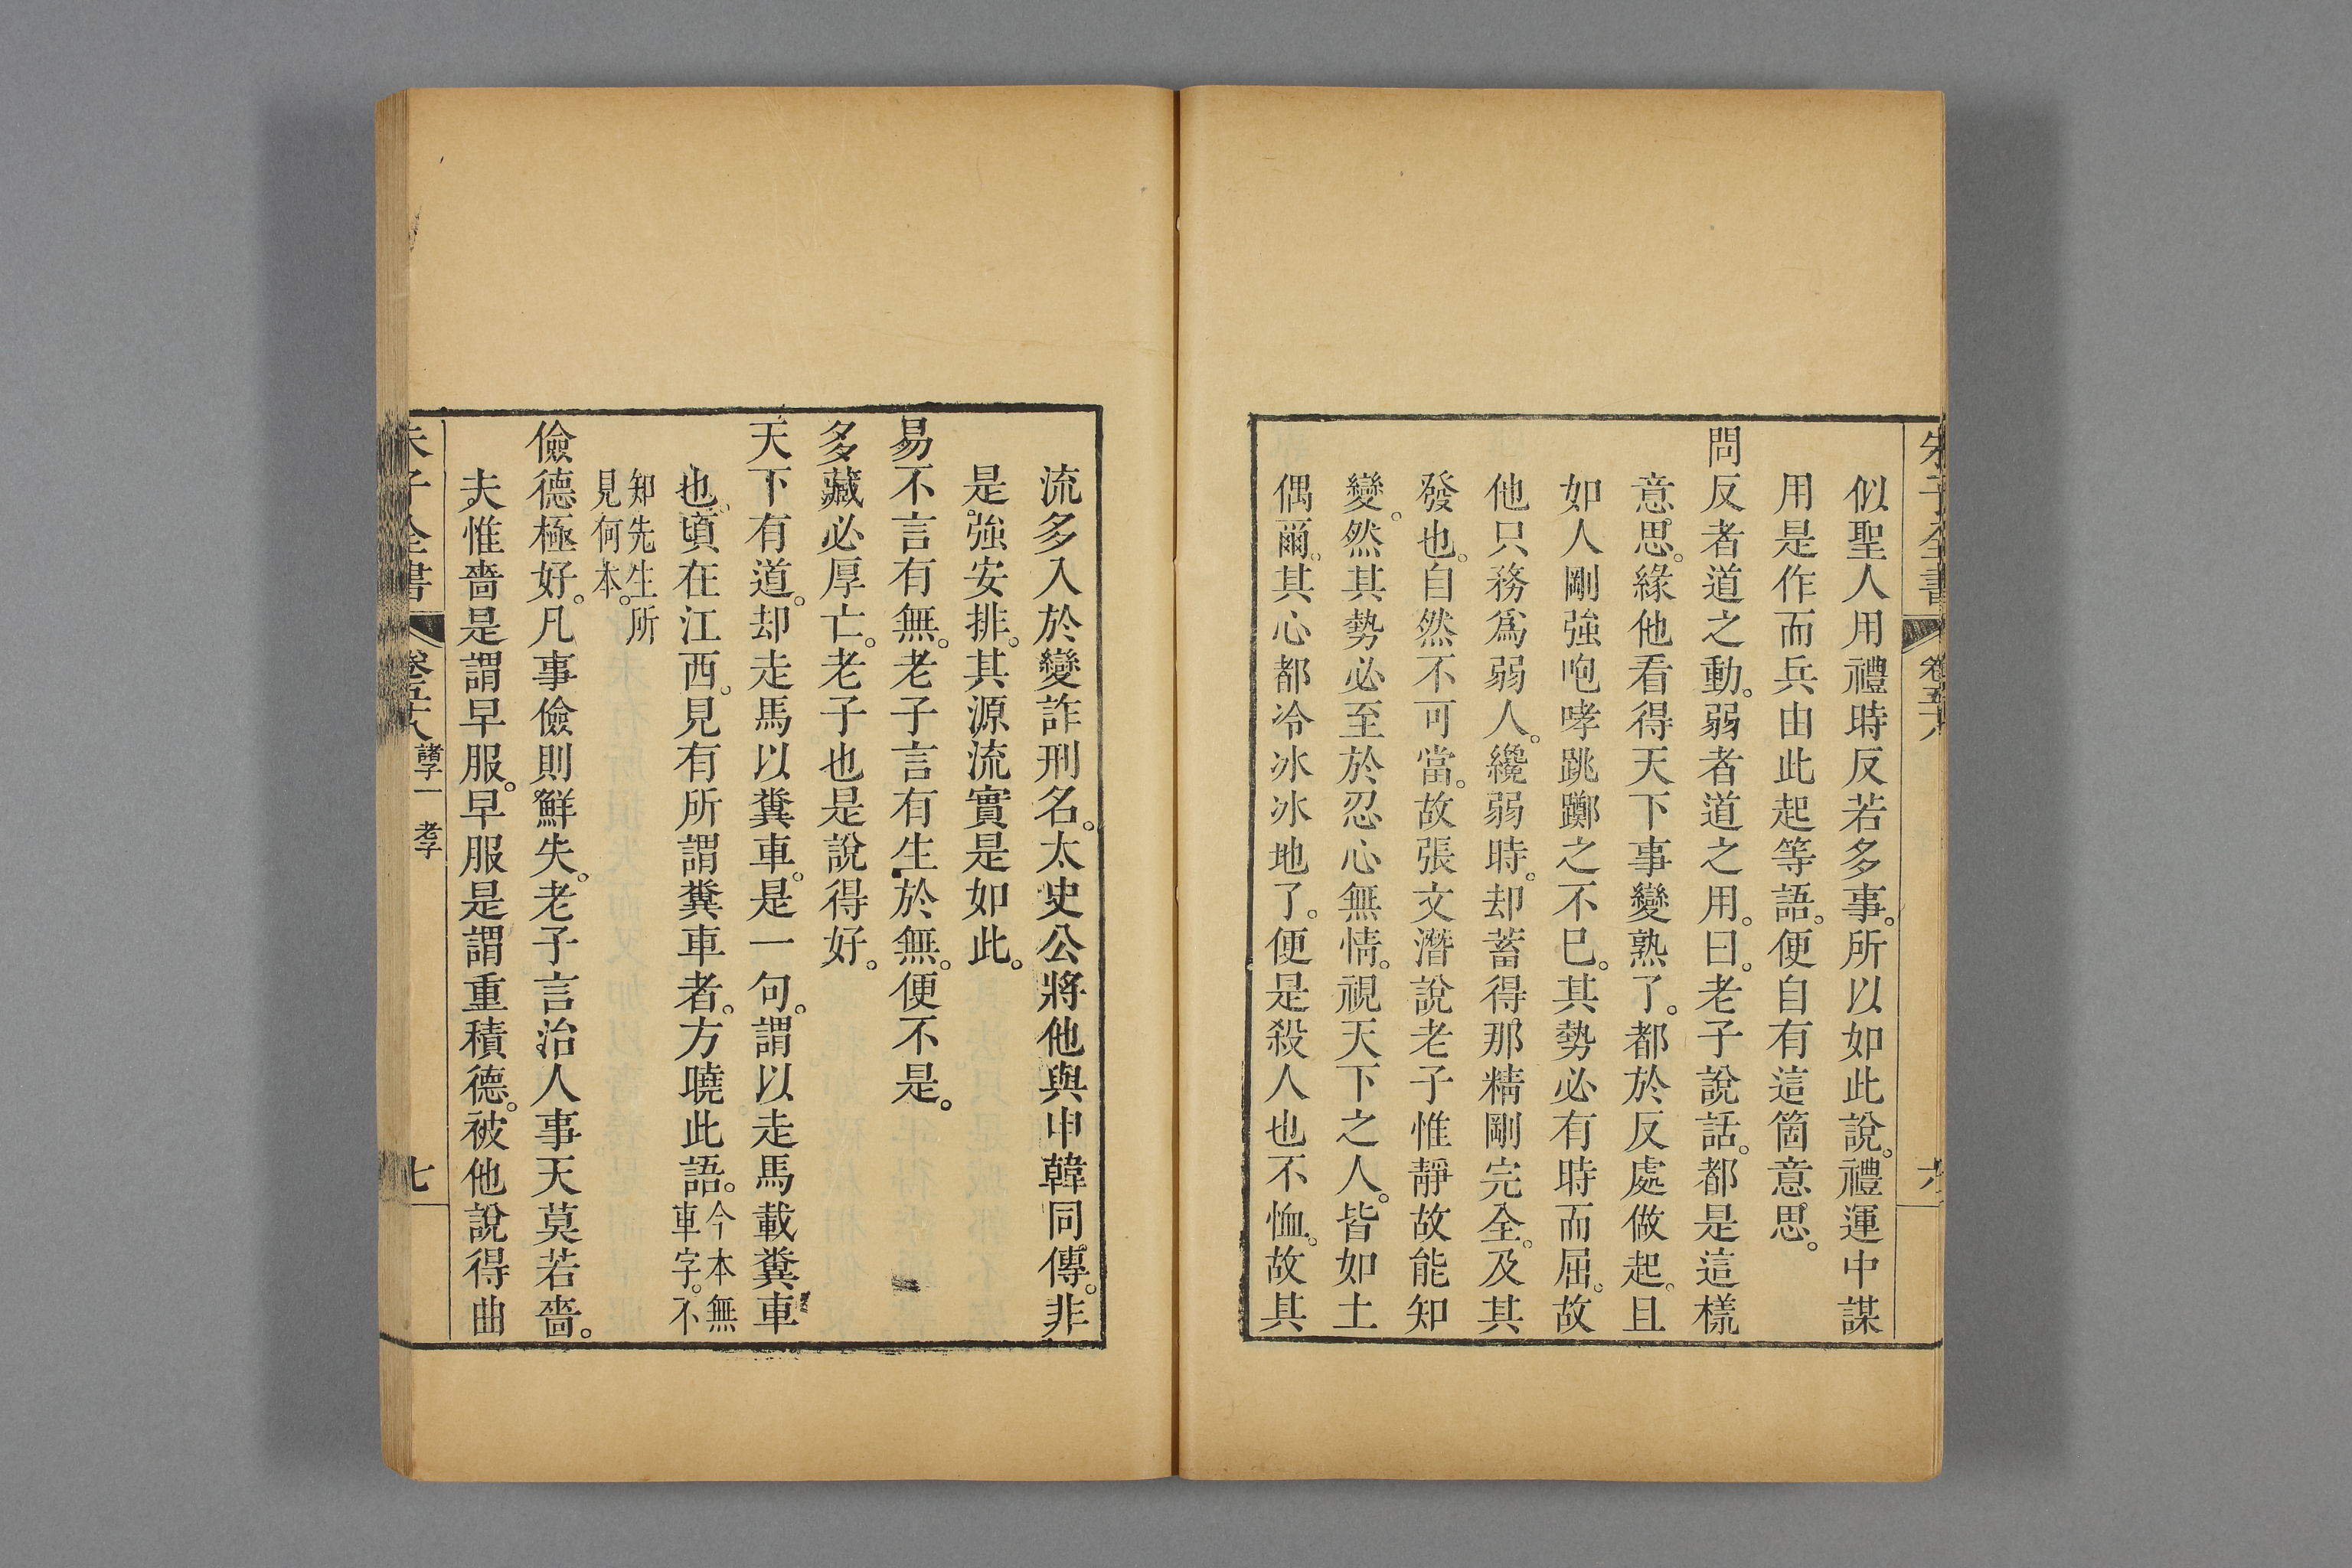 朱子全書 卷五十八 六
似聖人用禮時反若多事。所以如此說。禮運中謀
用是作而兵由此起等語。便自有這箇意思。
問反者道之動。弱者道之用。曰。老子說話。都是這樣
意思。緣他看得天下事變熟了。都於反處做起。且
如人剛強咆哮跳躑之不已。其勢必有時而屈。故
他只務為弱人。纔弱時。却蓄得那精剛完全。及其
發也。自然不可當。故張文潛說老子惟靜故能知
變。然其勢必至於忍心無情。視天下之人。皆如土
偶爾。其心都冷冰冰地了。便是殺人也不恤。故其
流多入於變詐刑名。太史公將他與申韓同傳。非
是強安排。其源流實是如此。
易不言有無。老子言有生於無。便不是。
多藏必厚亡。老子也是說得好。
天下有道。却走馬以糞車。是一句。謂以走馬載糞車
也。頃在江西。見有所謂糞車者。方曉此語。今本無
車字。不
知先生所
見何本。
儉德極好。凡事儉則鮮失。老子言治人事天莫若嗇。
夫惟嗇是謂早服。早服是謂重積德。被他說得曲
朱子全書 卷五十八 諸子一 老子 七